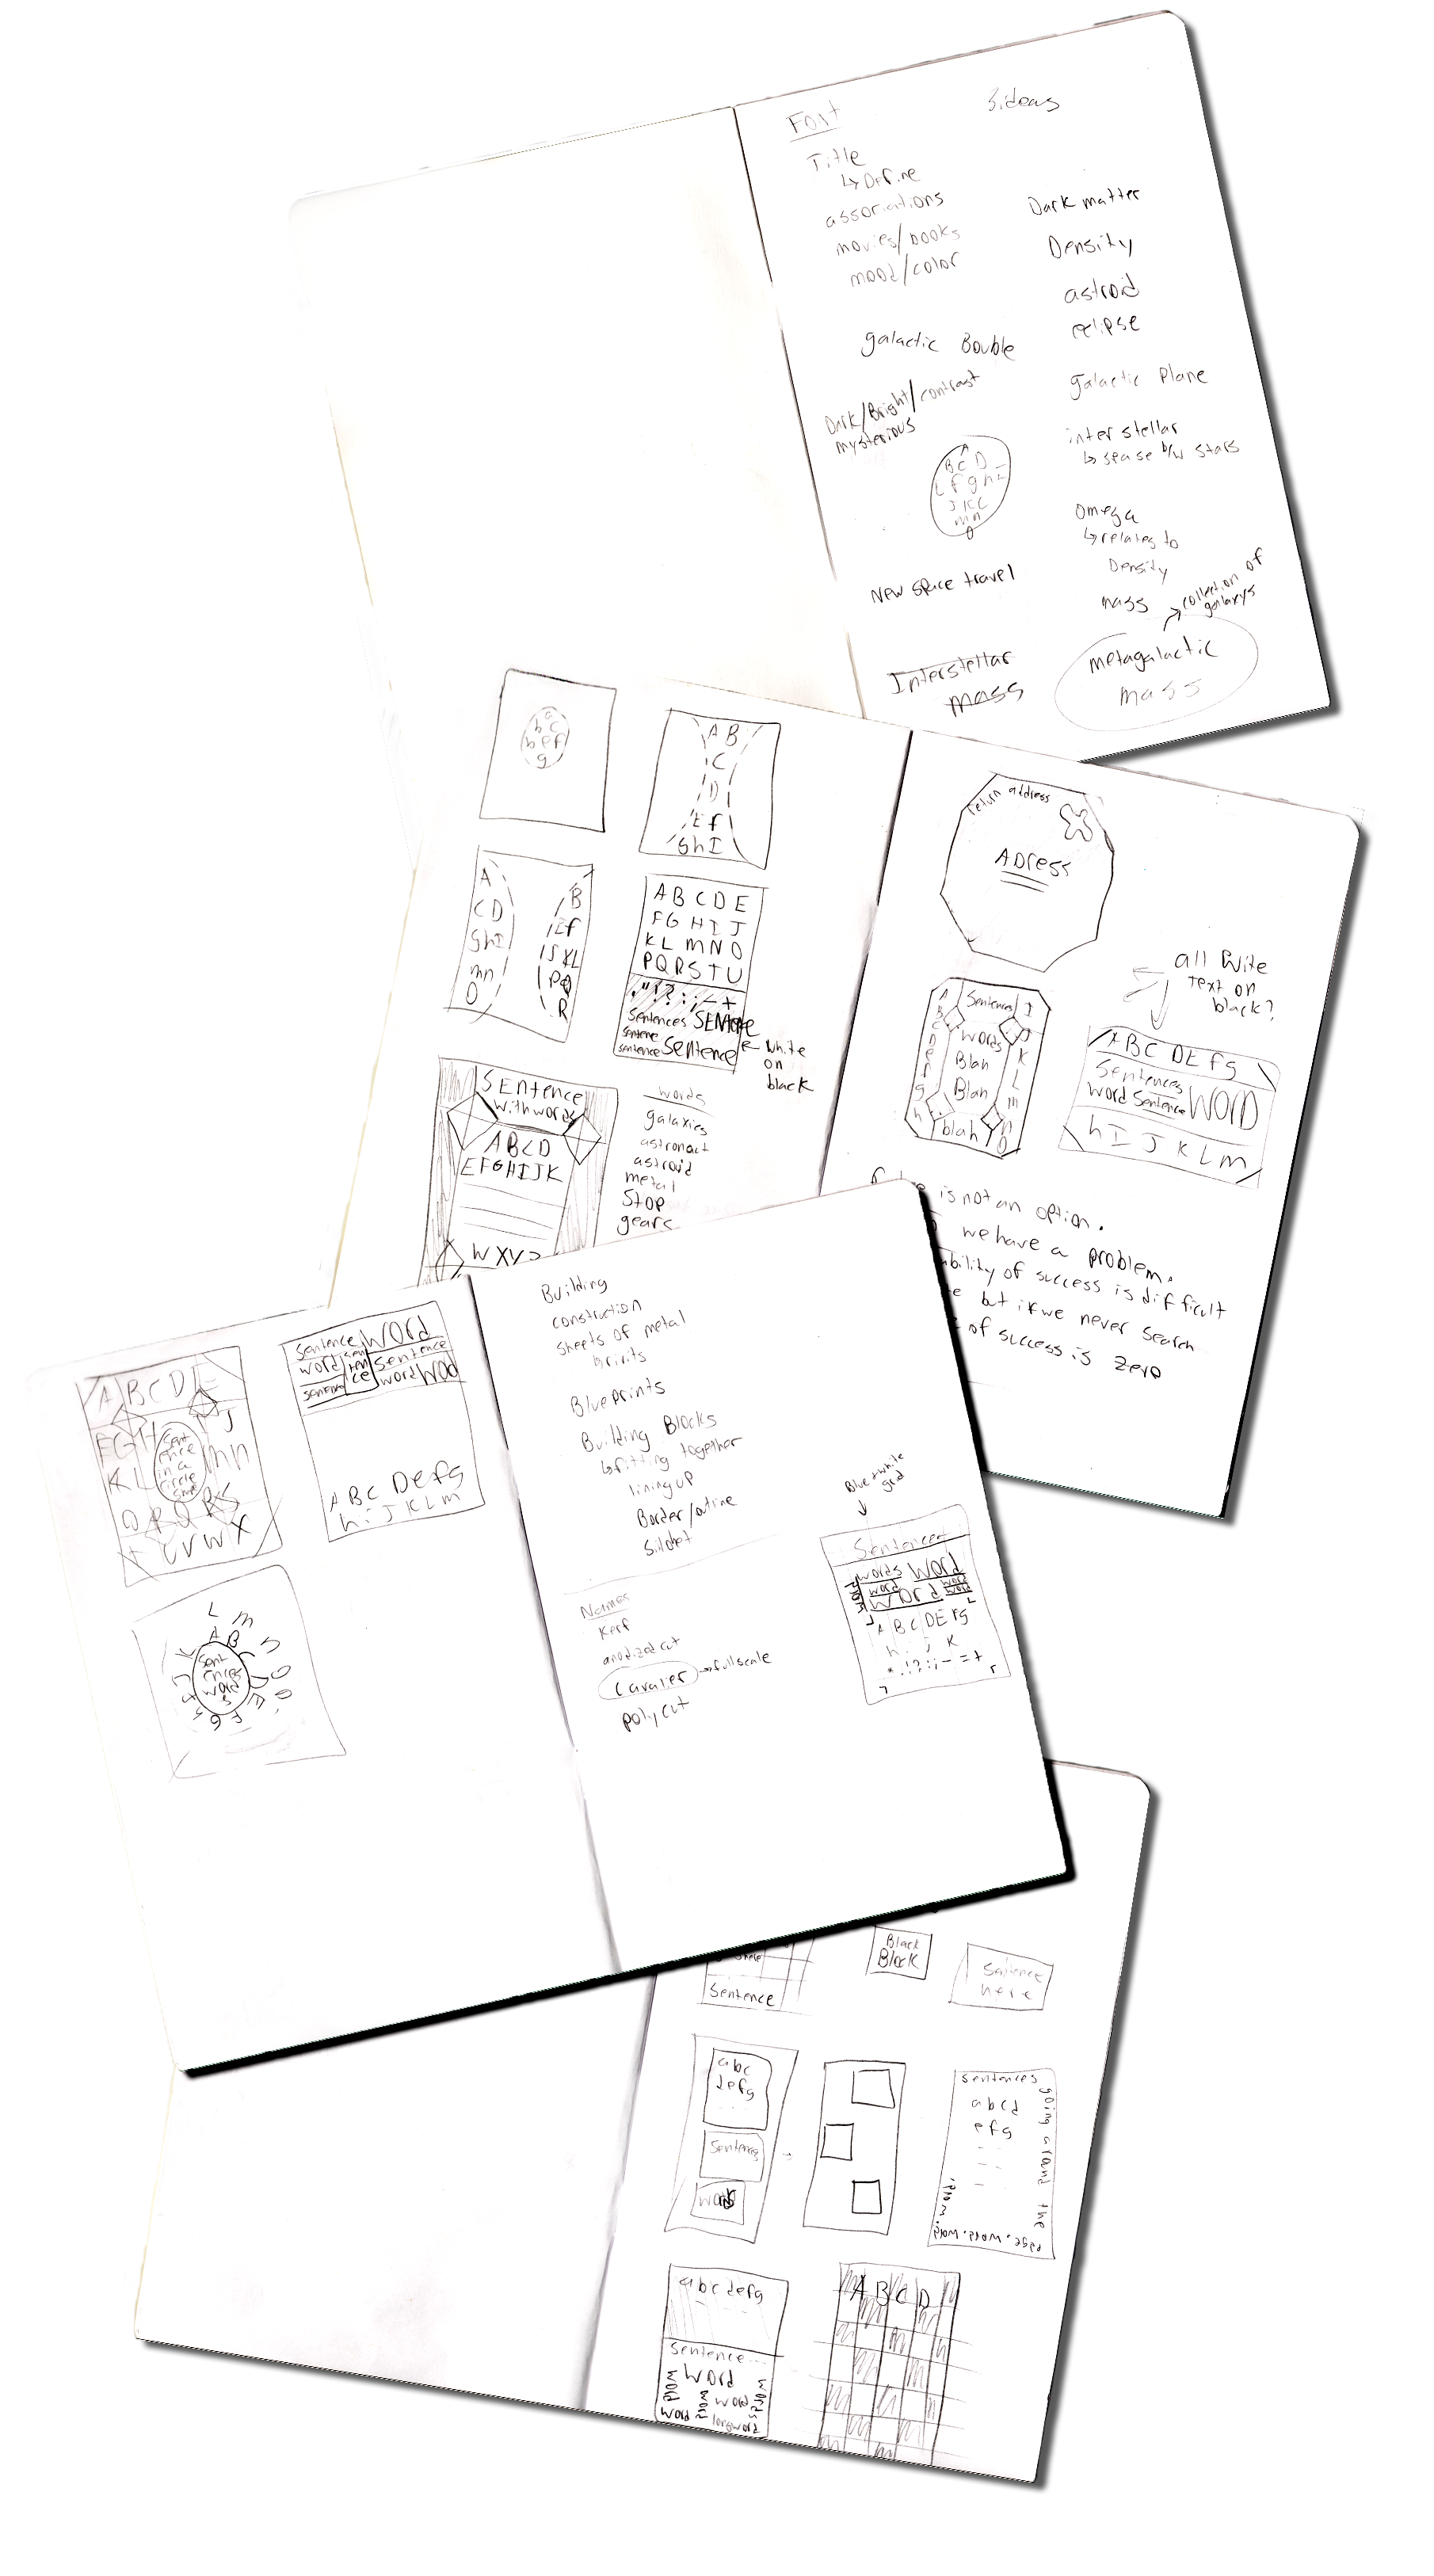 Font
3 ideas
Title
↳ Define
associations
movies/books
mood/color
galactic Bouble
Dark/Bright/contrast
mysterious
A
B C D
E f g h I
J K L
m n
O
New space travel
Interstellar
mass
Dark matter
Density
astroid
eclipse
galactic Plane
interstellar
↳ space b/w stars
omega
↳ relates to
Density
mass
collection of
galaxys
metagalactic
mass
a
b c
d e f
g
A B
C
D
E f
G h I
A
C D
G h I
m n
O
B
E f
J K L
P Q
R
A B C D E
F G H I J
K L m N O
P Q R S T U
. " ! ? : ; - +
Sentences Sentence
sentence
sentence Sentence
← white
on
black
SEntence
with words
ABCD
EFGHIJK
W X Y Z
words
galaxies
astronact
astroid
metal
Stop
gears
return address
ADress
all Wite
text on
black?
A
B
C
D
e
f
g
h
Sentences
words
Blah
Blah
blah
I
J
K
L
m
n
O
A B C D E f g
Sentences
word Sentence WORD
h I J K L m
is not an option.
we have a problem.
ability of success is difficult
but if we never search
of success is zero
A B C D E
F G H J
K L m n
O P Q R S
U V W X
Sentence
in a
circle
Sentence Word
word sentence Sentence
sentence word Word
A B C D e f g
h i J K L m
L m n O
A B C D E F G
Sentences
words
Building
construction
sheets of metal
Blueprints
Building Blocks
↳ fitting together
lining up
Border/outine
Names
Kerf
anodized cut
Cavalier → full scale
polycut
Blue + white
grid
Sentences
words Word
word Word word
word
A B C D E f g
h i j K
* . ! ? : ; - = +
Sentence
Black
Block
Sentence
here
abc
defg
Sentences
words
sentences going around the
page. word. word. word.
abcd
efg
abcdefg
Sentence
word Word words
word word
word longword
A B C D